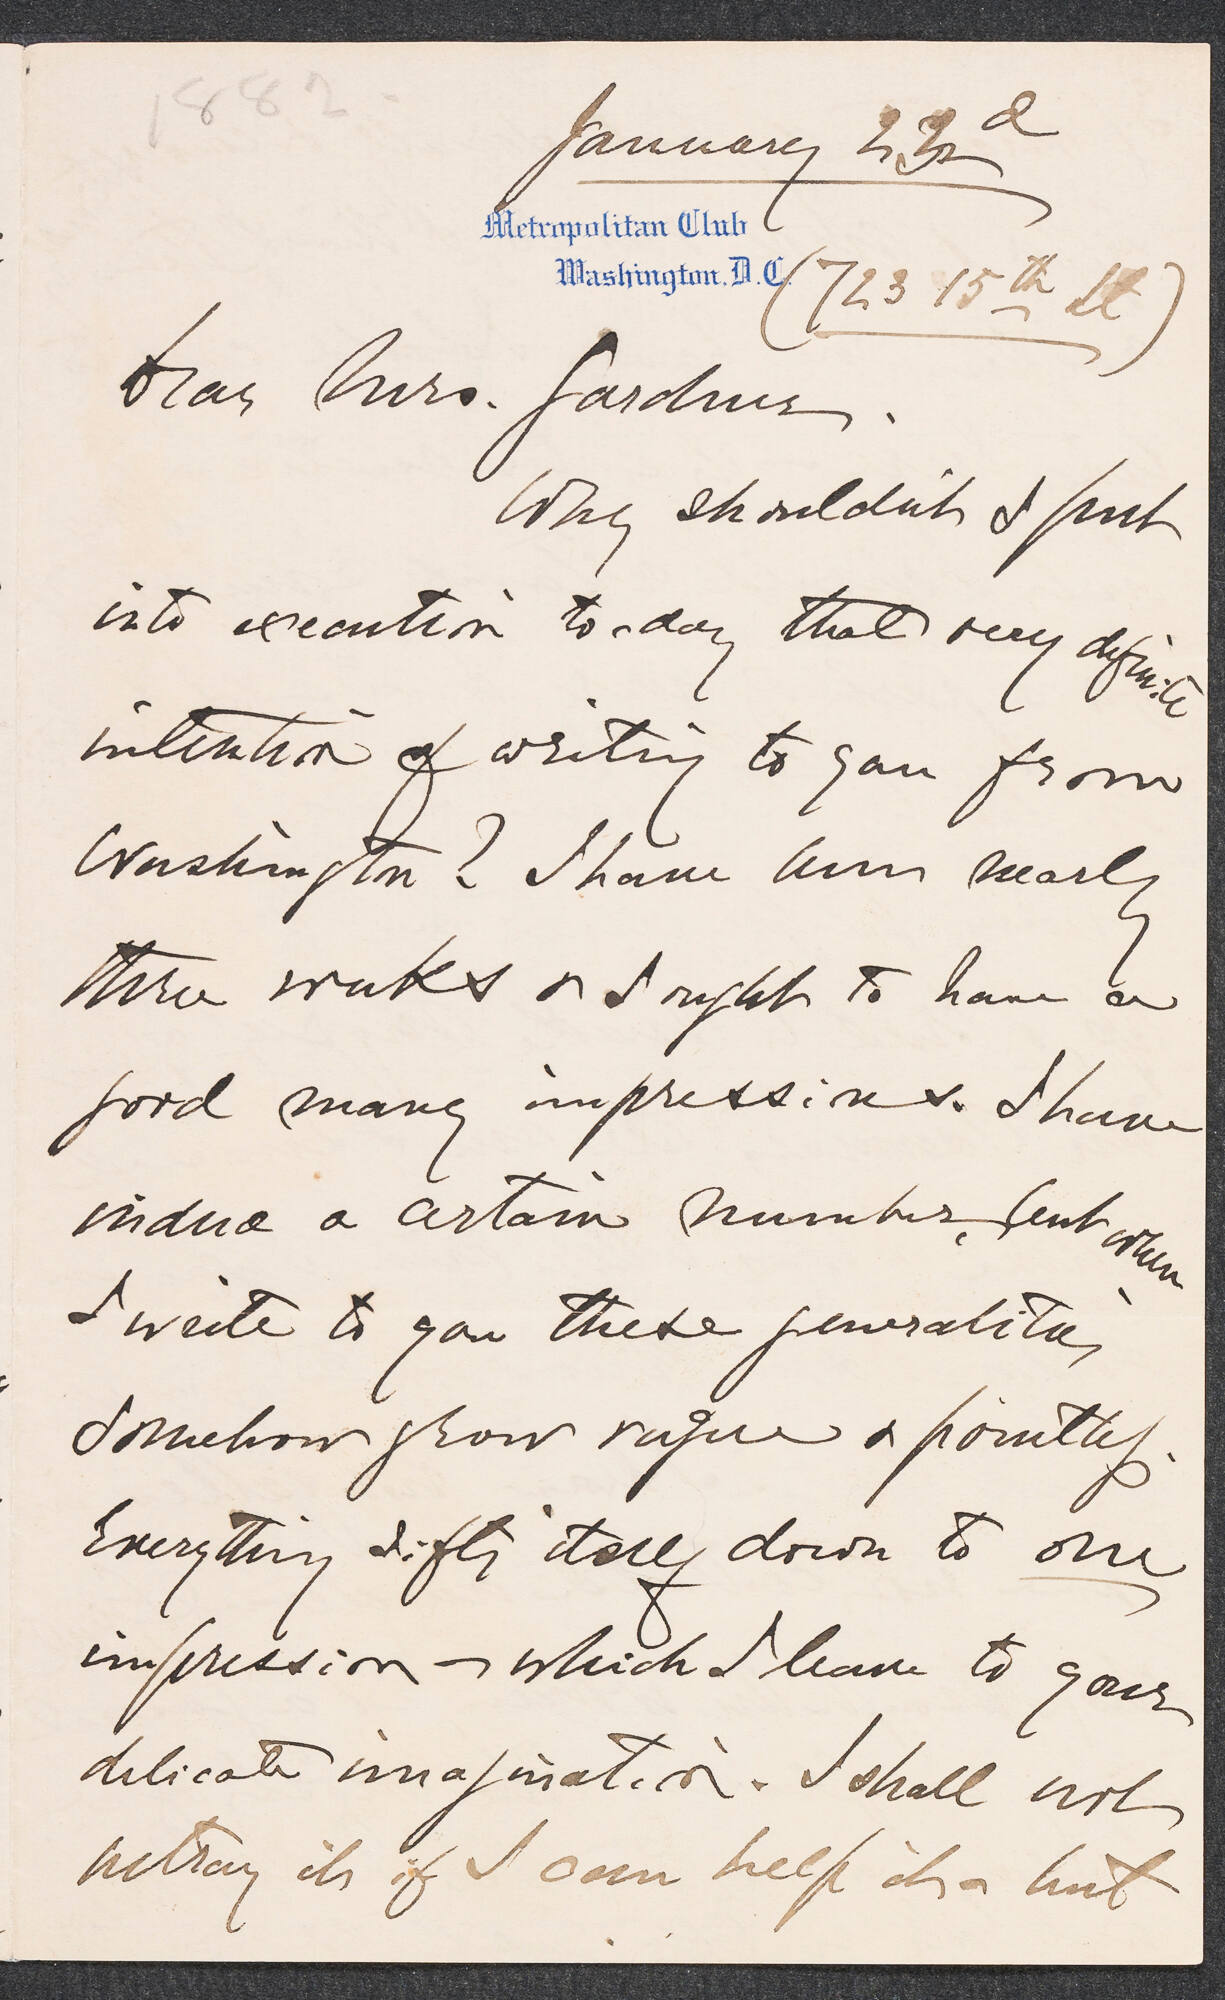 1882 -
January 22d
Metropolitan Club
Washington. D.C.
(723 15th St)
Dear Mrs. Gardner.
Why shouldn't I put
into execution to-day that very definite
intention of writing to you from
Washington? I have been nearly
three weeks & I ought to have a
good many impressions. I have
indeed a certain number, but when
I write to you these generalities
somehow grow vague & pointless.
Everything sifts itself down to one
impression — which I leave to your
delicate imagination. I shall not
betray it if I can help it - but